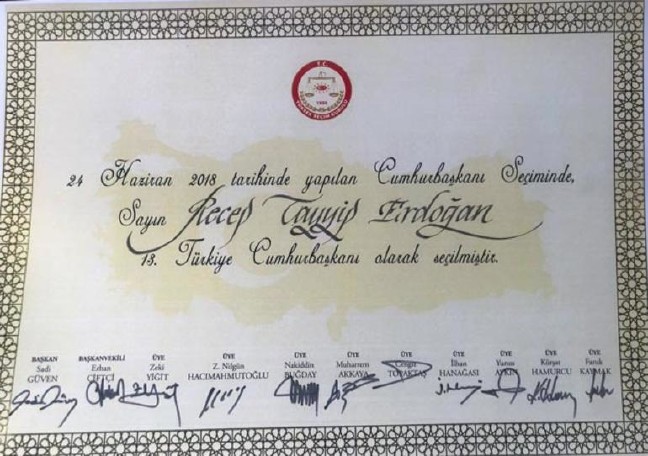 T.C.
YÜKSEK SEÇİM KURULU
24 Haziran 2018 tarihinde yapılan Cumhurbaşkanı Seçiminde,
Sayın Recep Tayyip Erdoğan
13. Türkiye Cumhurbaşkanı olarak seçilmiştir.
BAŞKAN BAŞKANVEKİLİ ÜYE ÜYE ÜYE ÜYE ÜYE ÜYE ÜYE ÜYE ÜYE
Sadi Erhan Zeki Z. Nilgün Nakiddin Muharrem Cengiz İlhan Yunus Kürşat Faruk
GÜVEN ÇİFTÇİ YİĞİT HACIMAHMUTOĞLU BUĞDAY AKKAYA TOPAKTAŞ HANAĞASI AYKIN HAMURCU KAYMAK